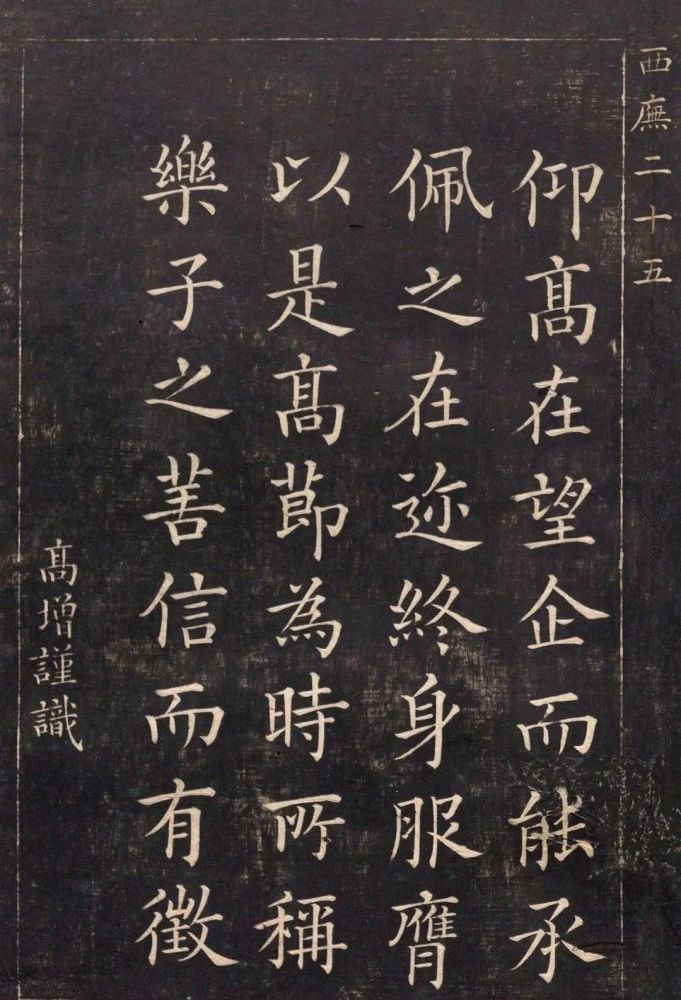 西廡二十五
仰髙在望企而能承
佩之在迩終身服膺
以是髙節為時所稱
樂子之善信而有徵
髙增謹識